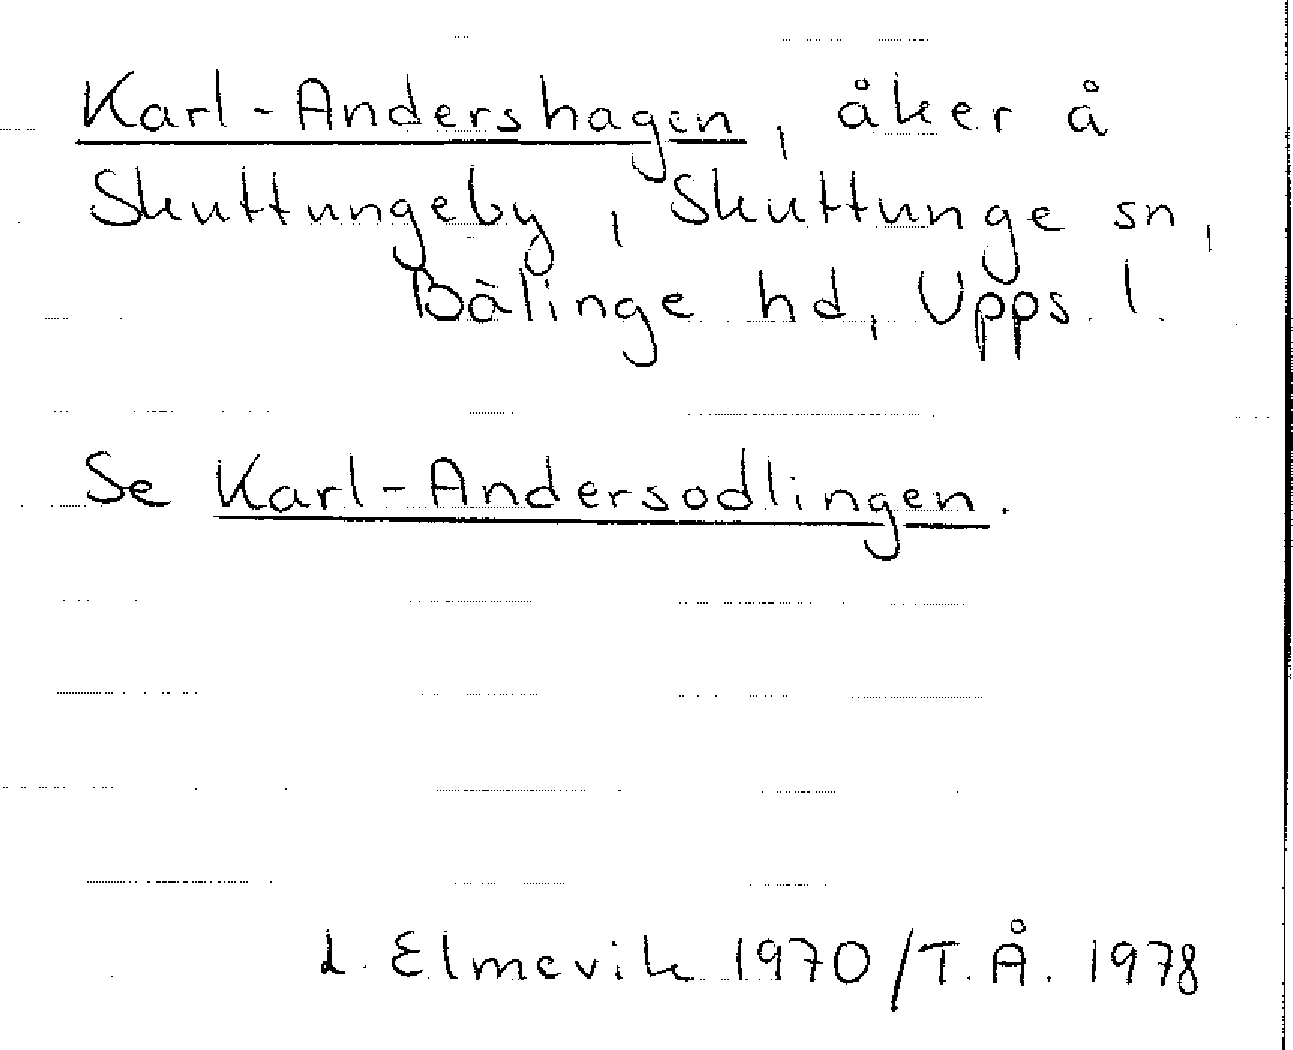 Karl-Andershagen, åker å
Skuttungeby, Skuttunge sn,
Bälinge hd, Upps. l.
Se Karl-Andersodlingen.
L. Elmevik 1970/T.Å. 1978